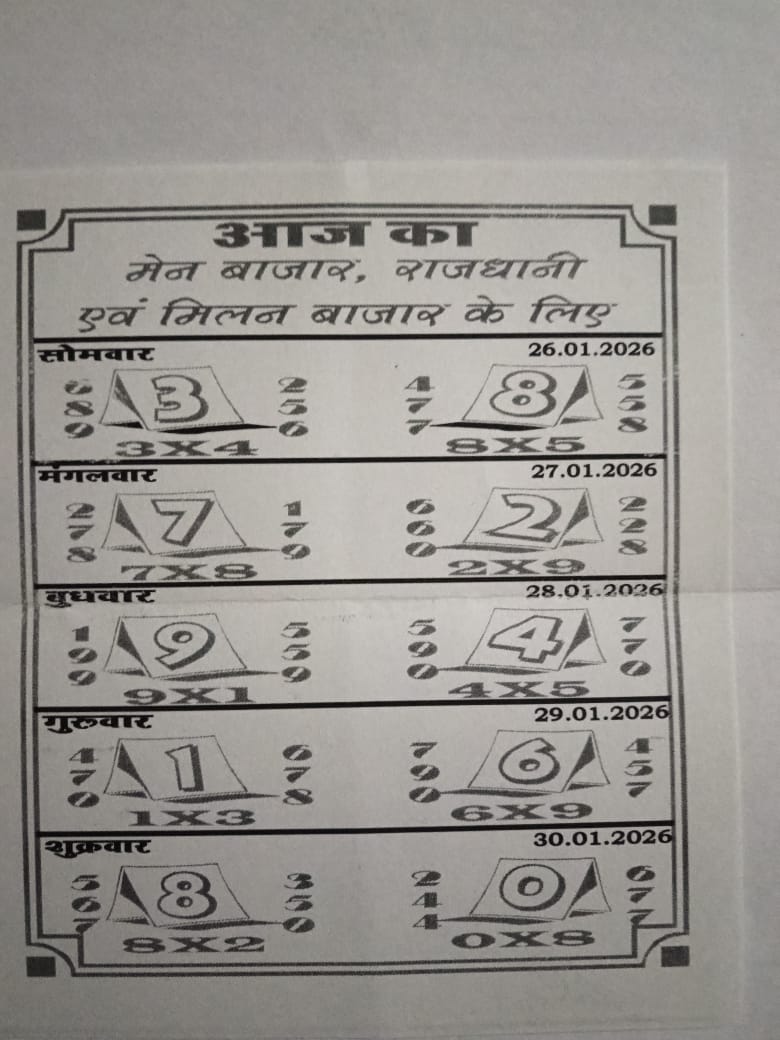 आज का
मेन बाजार, राजधानी
एवं मिलन बाजार के लिए
सोमवार 26.01.2026
6 2 4 5
8 3 5 7 8 5
9 6 7 8
3X4 8X5
मंगलवार 27.01.2026
2 1 6 2
7 7 7 6 2 2
8 9 0 8
7X8 2X9
बुधवार 28.01.2026
1 5 5 7
9 9 5 9 4 7
9 9 0 0
9X1 4X5
गुरुवार 29.01.2026
4 6 7 4
7 1 7 9 6 5
0 8 0 7
1X3 6X9
शुक्रवार 30.01.2026
5 3 2 6
6 8 5 4 0 7
7 0 4 7
8X2 0X8